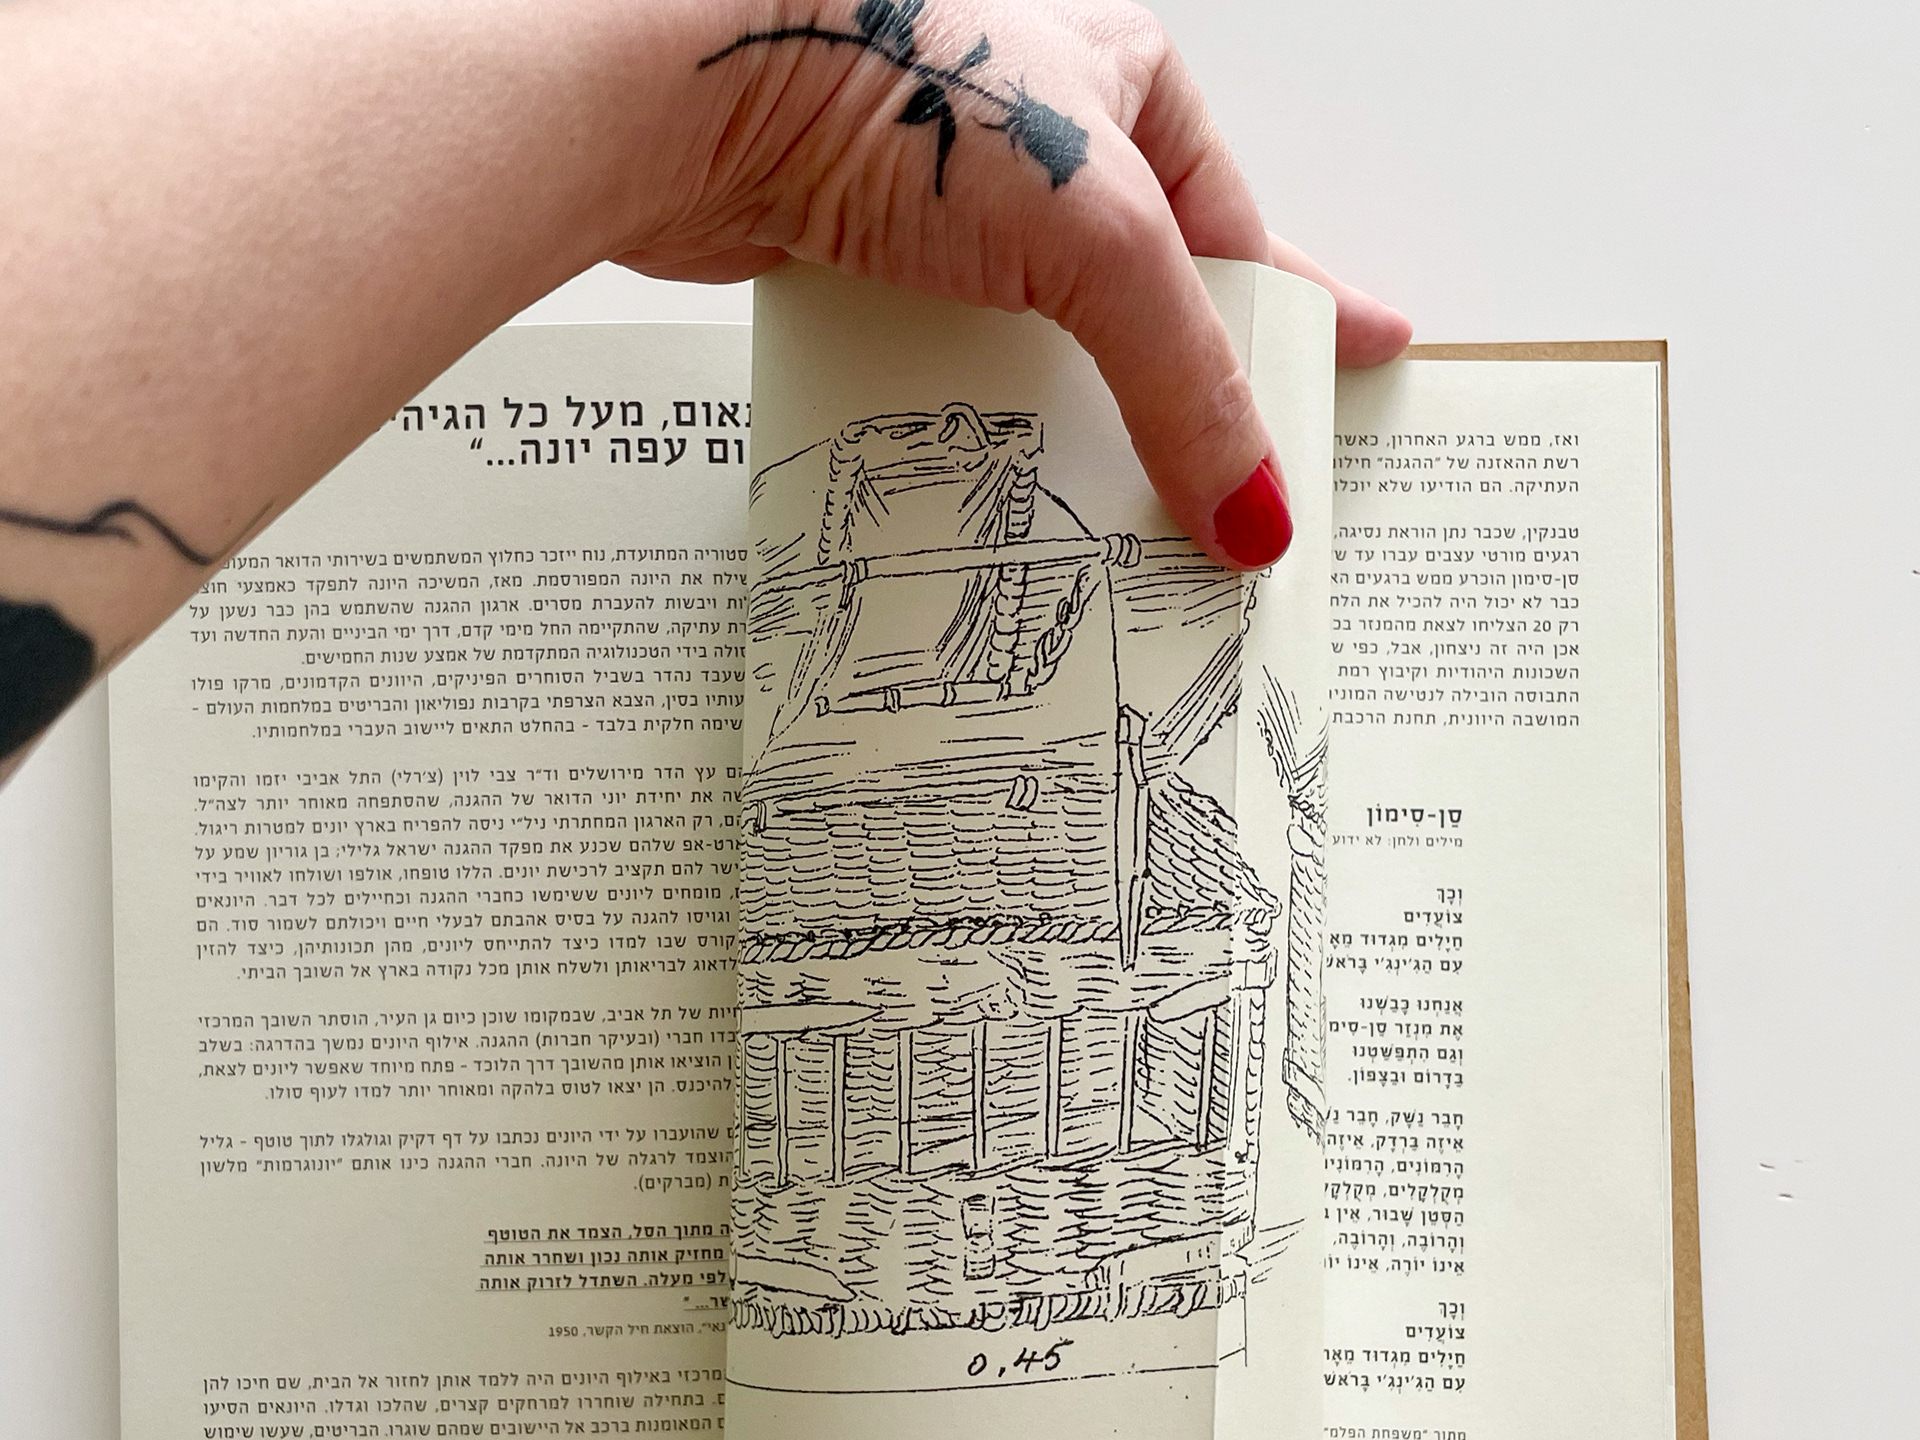 ואז, ממש ברגע האחרון, כאשר
רשת ההאזנה של "ההגנה"
העתיקה. הם הודיעו שלא
טבנקין, שכבר נתן הוראת נסיגה,
רגעים מורטי עצבים עברו עד
סן-סימון הוכרע ממש ברגעים
כבר לא יכול היה להכיל את
רק 20 הצליחו לצאת מהמנזר
אכן היה זה ניצחון, אבל, כפי
השכונות היהודיות וקיבוץ רמת
התבוסה הובילה לנטישה
המושבה היוונית, תחנת הרכבת
סַן-סִימוֹן
מילים ולחן: לא ידוע
וְכָךְ
צוֹעֲדִים
חַיָּלִים מִגְּדוּד
עִם הַגִּ'ינְגִ'י
אֲנַחְנוּ כָּבַשְׁנוּ
אֶת מִנְזַר
וְגַם הִתְפַּשַּׁטְנוּ
בַּדָּרוֹם וּבַצָּפוֹן.
חָבֵר נֶשֶׁק, חָבֵר
אֵיזֶה בַּרְדָּק,
הָרִמּוֹנִים,
מְקֻלְקָלִים,
הַסְּטֶן שָׁבוּר, אֵין
וְהָרוֹבֶה, וְהָרוֹבֶה,
אֵינוֹ יוֹרֶה, אֵינוֹ
וְכָךְ
צוֹעֲדִים
חַיָּלִים מִגְּדוּד
עִם הַגִּ'ינְגִ'י
מתוך "משפחת הפלמ"
0,45
מעל כל
עפה יונה..."
המתועדת, נוח ייזכר כחלוץ המשתמשים בשירותי הדואר
את היונה המפורסמת. מאז, המשיכה היונה לתפקד כאמצעי
ויבשות להעברת מסרים. ארגון ההגנה שהשתמש בהן כבר נשען על
עתיקה, שהתקיימה החל מימי קדם, דרך ימי הביניים והעת החדשה ועד
בידי הטכנולוגיה המתקדמת של אמצע שנות החמישים.
שעבד נהדר בשביל הסוחרים הפיניקים, היוונים הקדמונים, מרקו פולו
בסין, הצבא הצרפתי בקרבות נפוליאון והבריטים במלחמות העולם –
חלקית בלבד – בהחלט התאים ליישוב העברי במלחמותיו.
עץ הדר מירושלים וד"ר צבי לוין (צ'רלי) התל אביבי יזמו והקימו
את יחידת יוני הדואר של ההגנה, שהסתפחה מאוחר יותר לצה"ל.
רק הארגון המחתרתי ניל"י ניסה להפריח בארץ יונים למטרות ריגול.
שלהם שכנע את מפקד ההגנה ישראל גלילי; בן גוריון שמע על
להם תקציב לרכישת יונים. הללו טופחו, אולפו ושולחו לאוויר בידי
מומחים ליונים ששימשו כחברי ההגנה וכחיילים לכל דבר. היונאים
וגויסו להגנה על בסיס אהבתם לבעלי חיים ויכולתם לשמור סוד. הם
שבו למדו כיצד להתייחס ליונים, מהן תכונותיהן, כיצד להזין
לדאוג לבריאותן ולשלח אותן מכל נקודה בארץ אל השובך הביתי.
של תל אביב, שבמקומו שוכן כיום גן העיר, הוסתר השובך המרכזי
חברי (ובעיקר חברות) ההגנה. אילוף היונים נמשך בהדרגה: בשלב
הוציאו אותן מהשובך דרך הלוכד – פתח מיוחד שאפשר ליונים לצאת,
להיכנס. הן יצאו לטוס בלהקה ומאוחר יותר למדו לעוף סולו.
שהועברו על ידי היונים נכתבו על דף דקיק וגולגלו לתוך טוטף – גליל
הוצמד לרגלה של היונה. חברי ההגנה כינו אותם "יונוגרמות" מלשון
(מברקים).
מתוך הסל, הצמד את הטוטף
מחזיק אותה נכון ושחרר אותה
כלפי מעלה. השתדל לזרוק אותה
הוצאת חיל הקשר, 1950
באילוף היונים היה ללמד אותן לחזור אל הבית, שם חיכו להן
בתחילה שוחררו למרחקים קצרים, שהלכו וגדלו. היונאים הסיעו
המאומנות ברכב אל היישובים שמהם שוגרו. הבריטים, שעשו שימוש